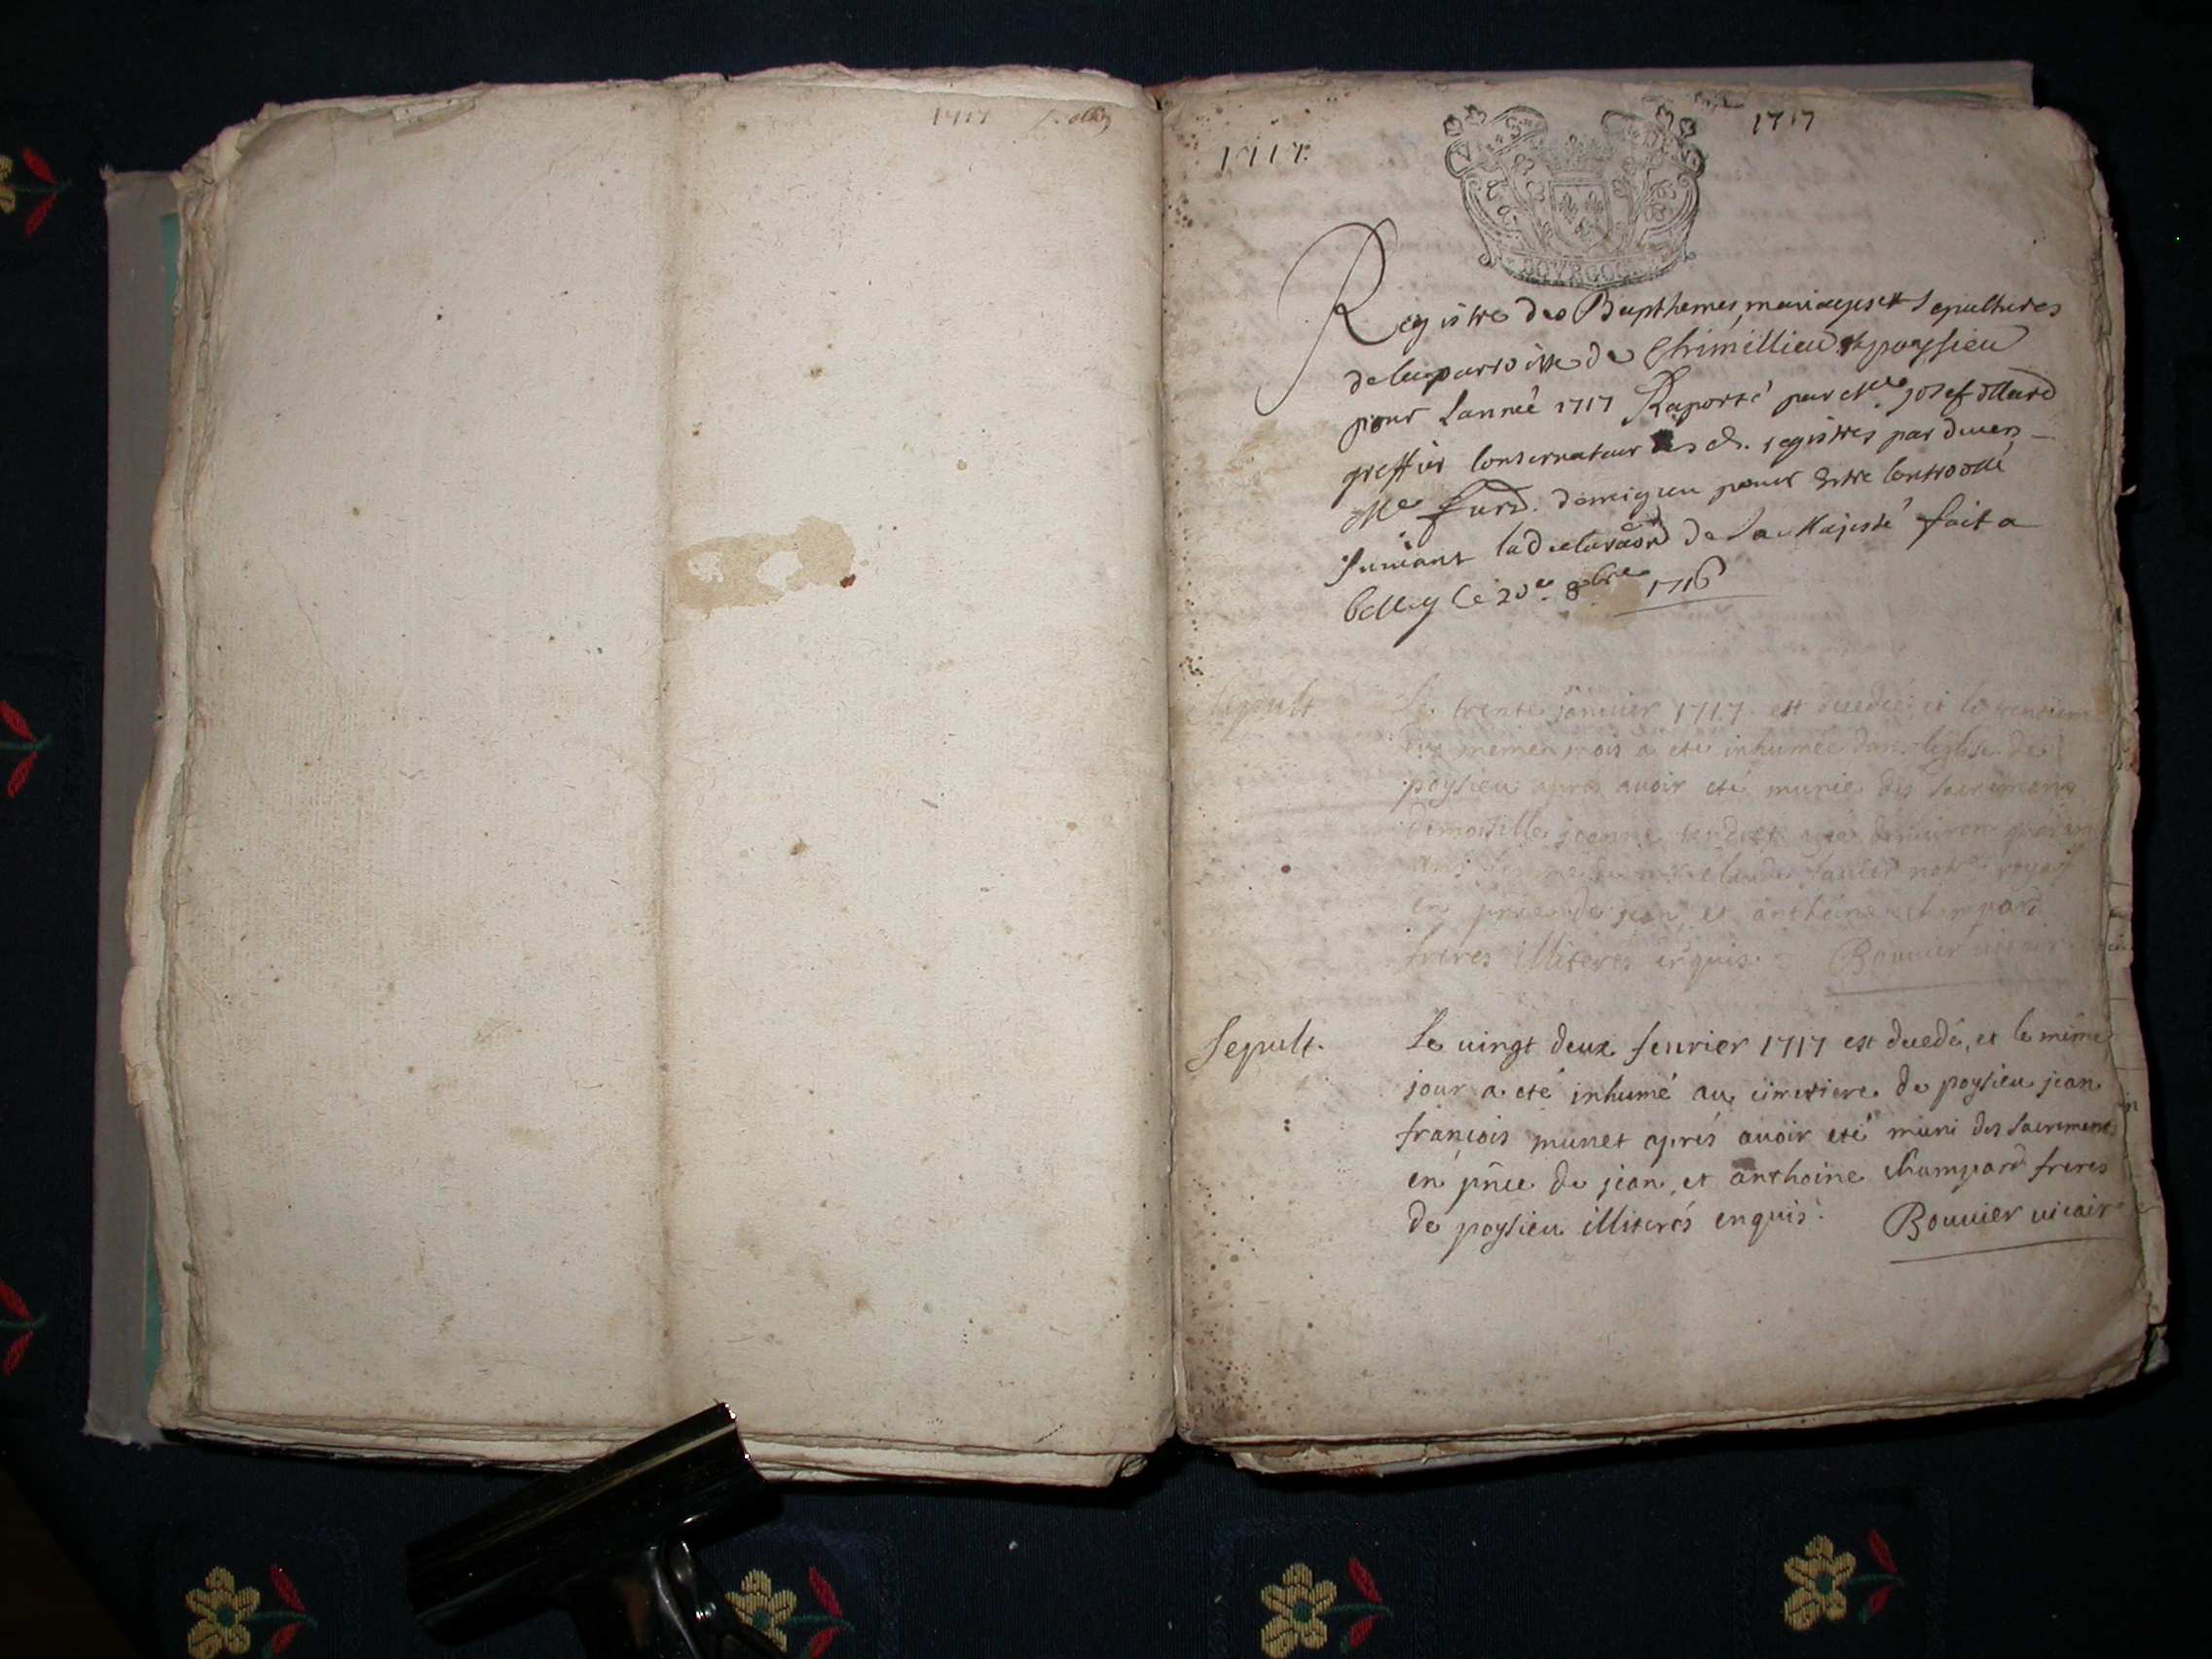 1717
1717.
1717
BOURGOG
Registre des Bapthemes, mariages et Sepultures
de la parroisse de Chimillieu et poysieu
pour Lanneé 1717 Raporté par Me josef
greffier Conservateur des d. registres par devers
Me Furd. demigieu pour Estre Controollé
suivant la declaraõn de Sa Majesté fait a
belley le 20e. 8bre 1716
Sepult
Le trente janvier 1717 est decedeé, et le
du meme mois a eté inhumeé dans leglise de
poysieu apres avoir eté munie des sacremens
Demoiselle jeanne
royal
en pñce de jean, et anthoine champard
freres illiterés enquis. Bouvier vicair
Sepult.
Le vingt deux fevrier 1717 est decedé, et le même
jour a eté inhumé au cimetiere de poysieu jean
francois munet aprés avoir eté muni des sacremens
en pñce de jean, et anthoine champard freres
de poysieu illiterés enquis. Bouvier vicaire